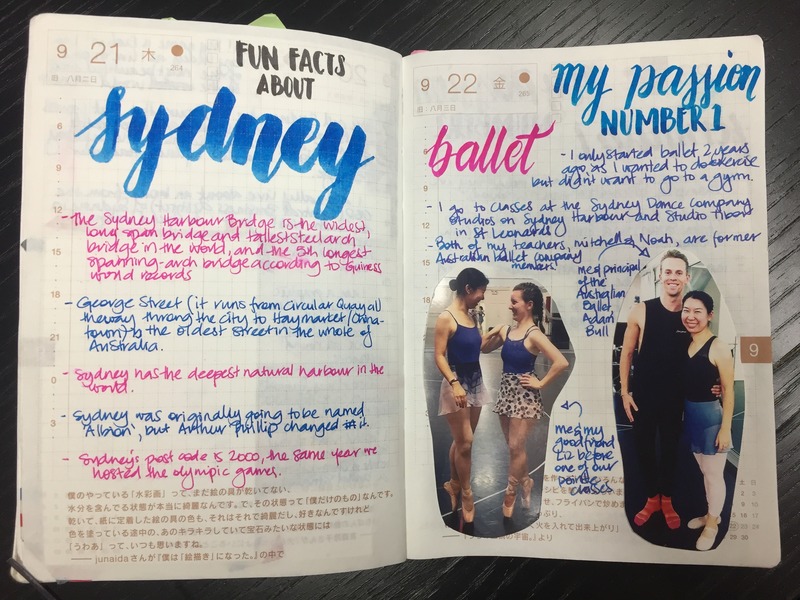 9 21 木
264
旧:八月二日
FUN FACTS
ABOUT
Sydney
- The Sydney Harbour Bridge is the widest,
long span bridge and tallest steel arch
bridge in the world, and the 5th longest
spanning-arch bridge according to Guiness
world records
- George Street (it runs from Circular Quay all
the way throng the city to Haymarket/China-
town) is the oldest street in the whole of
Australia.
- Sydney has the deepest natural harbour in the
world.
- Sydney was originally going to be named
'Albion', but Arthur Phillip changed it.
- Sydney's post code is 2000, the same year we
hosted the olympic games.
僕のやっている「水彩画」って、まだ絵の具が乾いてない、
水分を含んでる状態が本当に綺麗なんです。で、その状態って「僕だけのもの」なんです。
乾いて、紙に定着した絵の具の色も、それはそれで綺麗だし、好きなんですけれど
色を塗っている途中の、あのキラキラしていて宝石みたいな状態には
「うわあ」って、いつも思いますね。
── junaidaさんが『僕は「絵描き」になった。』の中で
9 22 金
265
旧:八月三日
my passion
NUMBER 1
ballet
- I only started ballet 2 years
ago as I wanted to do exercise
but didn't want to go to a gym.
- I go to classes at the Sydney Dance Company
studios on Sydney Harbour and Studio
in St Leonards
- Both of my teachers, mitchell & Noah, are former
Australian ballet company
members!
me & principal
of the
Australian
Ballet,
Adam
Bull
me & my
good friend
Liz before
one of our
pointe
classes
9